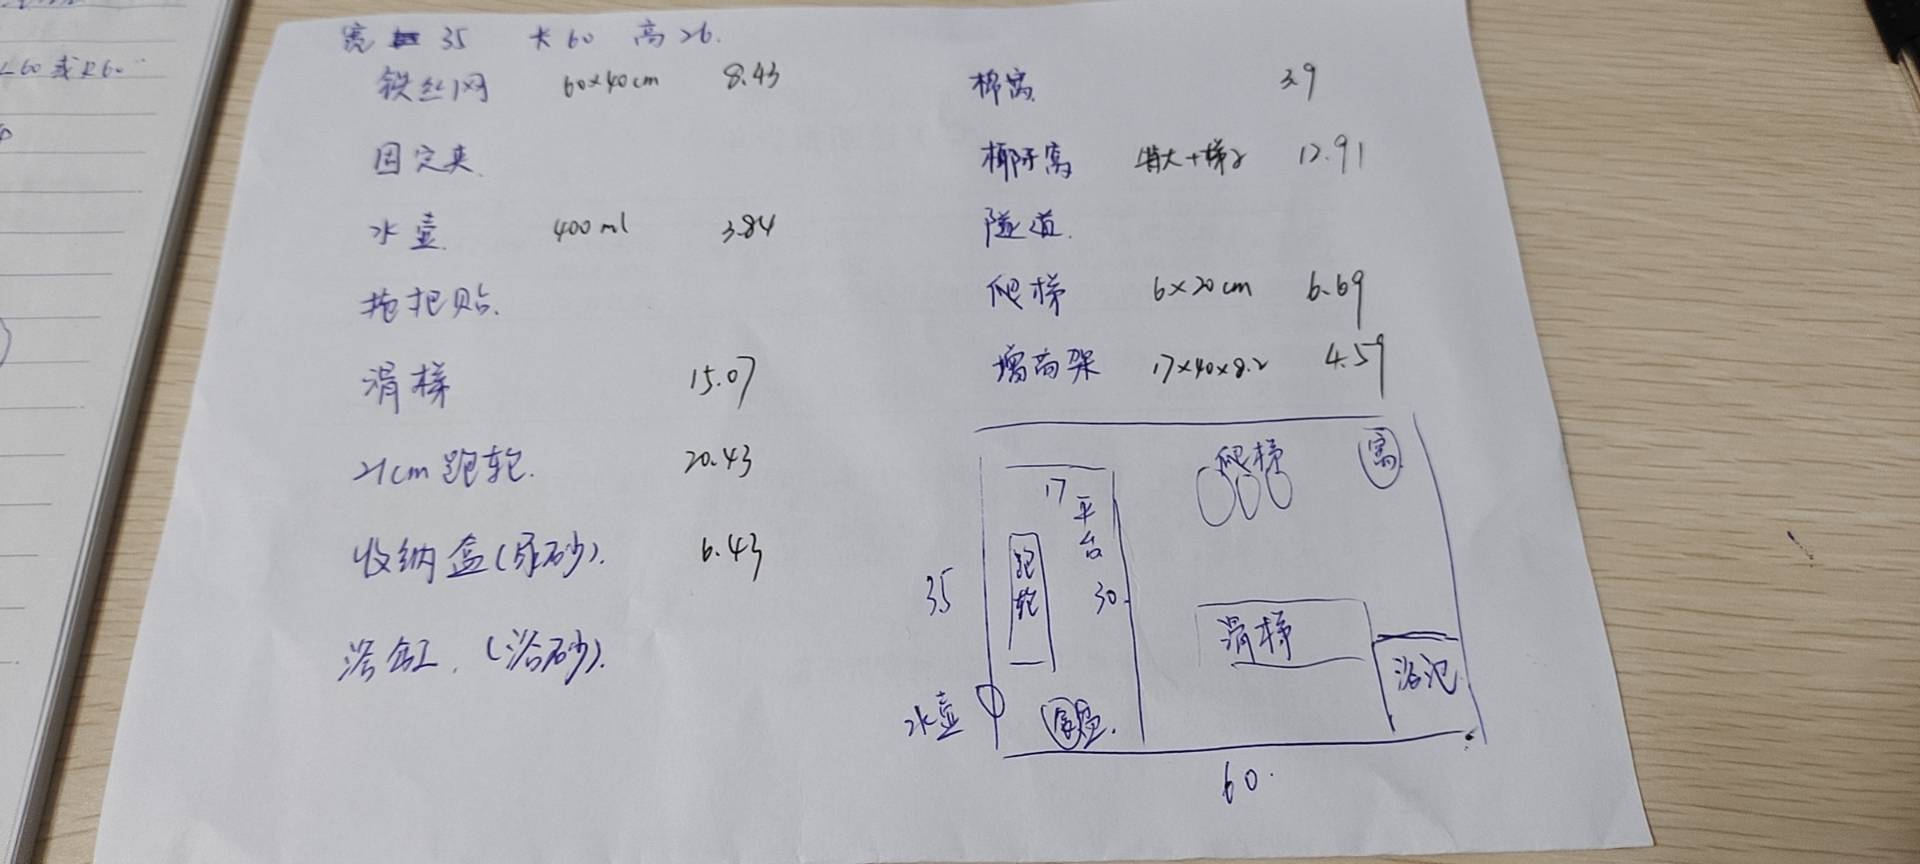 L60 或 R60
宽 35 长60 高26.
铁丝网 60×40cm 8.43
固定夹.
水壶. 400ml 3.84
拖把贴.
滑梯 15.07
21cm 跑轮. 20.43
收纳盒(尿砂). 6.43
浴缸. (浴砂).
棉窝. 3.9
椰子窝 特大+梯子 12.91
隧道.
爬梯 6×20cm 6.69
增高架 17×40×8.2 4.59
爬梯 窝
17 平台
跑轮
35 30
滑梯
浴池
水壶
60.